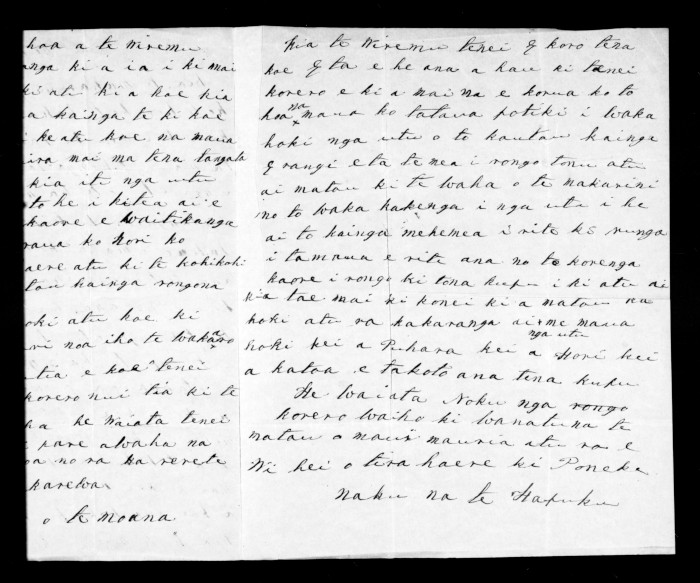 hoa a te Wiremu
anga ki a ia i ki mai
ki atu ki a koe kia
a kainga te ki koe
i ke atu koe na maua
ira mai ma tena tangata
kia iti nga utu
to he i kitea ai e
kaore e Waitikanga
raua ko Hori ko
aere atu ki te kohikohi
tou kainga rongona
oki atu koe ki
ri noa iho te wakaaro
utia e koe tenei
korero nui tia ki te
ha he Waiata tenei
i pare awaha na
oa no ra ka rerete
karewa
o te moana
Kia te Wiremu tenei E koro tena
koe E ta e he ana a hau ki tenei
korero e ki a mai na e korua ko to
hoa na maua ko tatava potiki i waka
hoki nga utu o to koutou kainga
E rangi e ta te mea i rongo tonu atu
ai matau ki te waha o te makarini
no to waka hakenga i nga utu i he
ai to kainga mehemea i rite ki runga
i tamaua e rite ana no te korenga
kaore i rongo ki tona kupu i ki atu ai
kia tae mai ki konei ki a matau na
hoki atu ra kakaranga ai x me maua
nga utu
hoki kei a Puhara kei a Hori kei
a katoa e takoto ana tena kupu
He waiata Noku nga rongo
korero waiho ki Wanatuna te
matau o maui mauria atu ra e
Wi hei o tira haere ki Poneke
Naku na te Hapuku